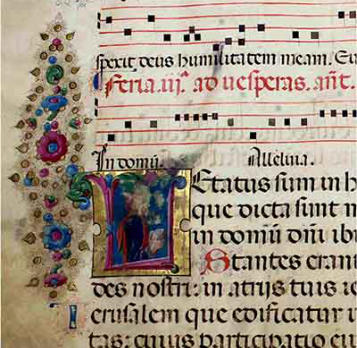 spexit deus humilitatem meam. Eu
Feria .iij. ad uesperas. añt.
In domũ. Alleluia.
Letatus sum in h
que dicta sunt m
in domũ dñi ibi
Stantes erant
des nostri: in atrijs tuis ie
erusalem que edificatur u
tas: cuius participatio eiu